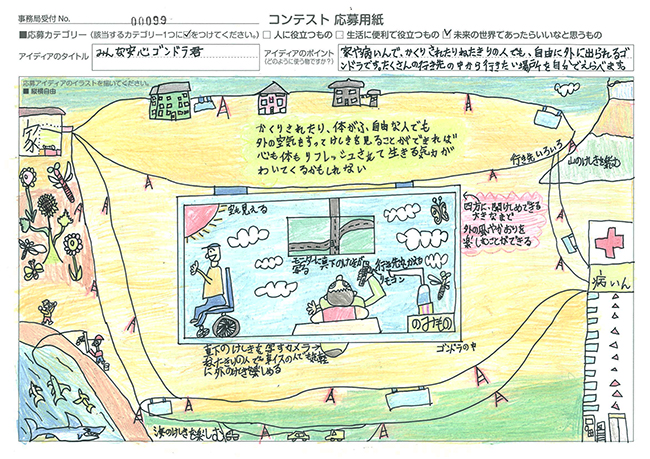 事務局受付 No. 00099
コンテスト 応募用紙
■応募カテゴリー(該当するカテゴリー1つに✓をつけてください。) □人に役立つもの □生活に便利で役立つもの ☑未来の世界であったらいいなと思うもの
アイディアのタイトル みんな安心ゴンドラ君
アイディアのポイント
(どのように使う物ですか?)
家や病いんで、かくりされたりねたきりの人でも、自由に外に出られるゴ
ンドラです。たくさんの行き先の中から行きたい場所を自分でえらべます。
応募アイディアのイラストを描いてください。
■縦横自由
家
かくりされたり、体がふ自由な人でも
外の空気をすってけしきを見ることができれば
心も体もリフレッシュされて生きる気力が
わいてくるかもしれない
行き先いろいろ
山のけしきを楽む
空も見える
四方に開けしめできる
大きなまど
外の風やかおりを
楽しむことができる
モニターに真下のけしきが
写る
行き先かえる
リモコン
のみもの
病いん
真下のけしきを写すカメラ
ねたきりの人でも車イスの人でも
に外のけしきを楽しめる
ゴンドラの中
海のけしきを楽しむ